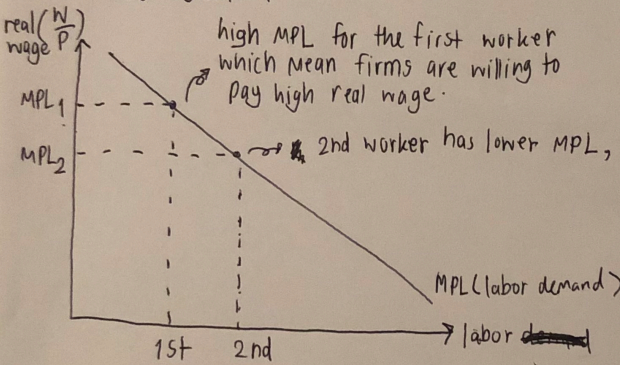 real (W/P)
wage
high MPL for the first worker
which mean firms are willing to
pay high real wage.
MPL1
MPL2
2nd worker has lower MPL,
MPL (labor demand)
labor
1st 2nd